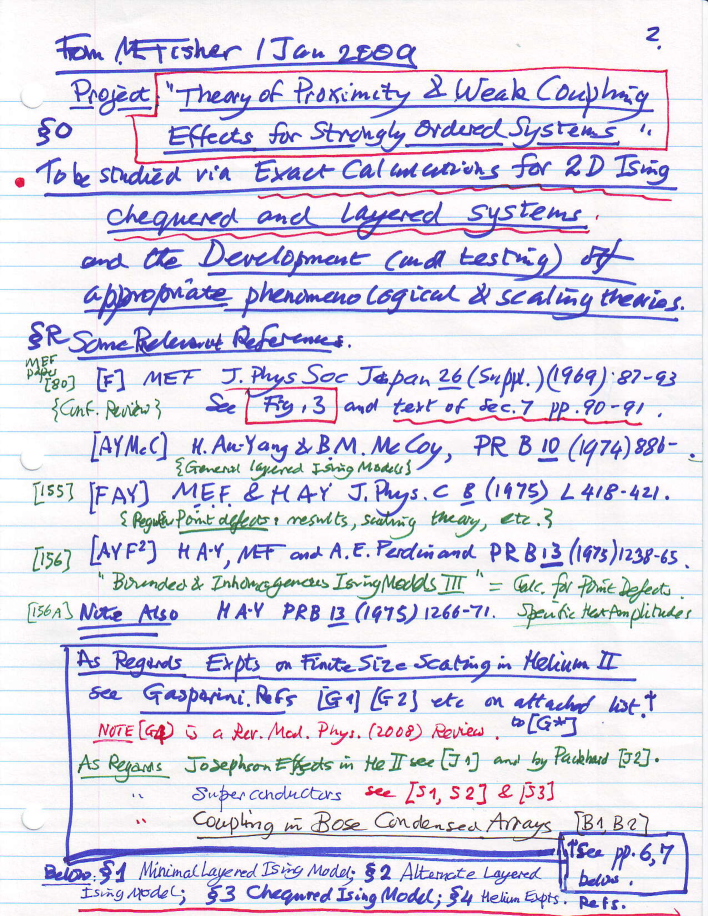 2.
From MEFisher 1 Jan 2009
Project: "Theory of Proximity & Weak Coupling
§0 Effects for Strongly Ordered Systems"
• To be studied via Exact Calculations for 2D Ising
chequered and layered systems.
and the Development (and testing) of
appropriate phenomenological & scaling theories.
§R Some Relevant References.
MEF paper [80] [F] MEF J. Phys Soc Japan 26 (Suppl.) (1969) 87-93
{Conf. Review} See Fig. 3 and text of sec. 7 pp. 90-91.
[AYMcC] H. Au-Yang & B.M. McCoy, PR B 10 (1974) 886-.
{General layered Ising Models}
[155] [FAY] M.E.F. & H A Y J. Phys. C 8 (1975) L 418-421.
{Regular Point defects: results, scaling theory, etc.}
[156] [AYF²] H A-Y, MEF and A.E. Ferdinand PR B 13 (1975) 1238-65.
"Bounded & Inhomogeneous Ising Models III" = Calc. for Point Defects.
[156A] Note Also H A-Y PRB 13 (1975) 1266-71. Specific Heat Amplitudes
As Regards Expts on Finite Size Scaling in Helium II
see Gasparini. Refs [G1] [G2] etc on attached list.†
to [G*]
NOTE [G4] is a Rev. Mod. Phys. (2008) Review.
As Regards Josephson Effects in He II see [J1] and by Packard [J2].
" Superconductors see [S1, S2] & [S3]
" Coupling in Bose Condensed Arrays [B1, B2]
†See pp. 6, 7
below.
Refs.
Below: §1 Minimal Layered Ising Model; §2 Alternate Layered
Ising Model; §3 Chequred Ising Model; §4 Helium Expts.